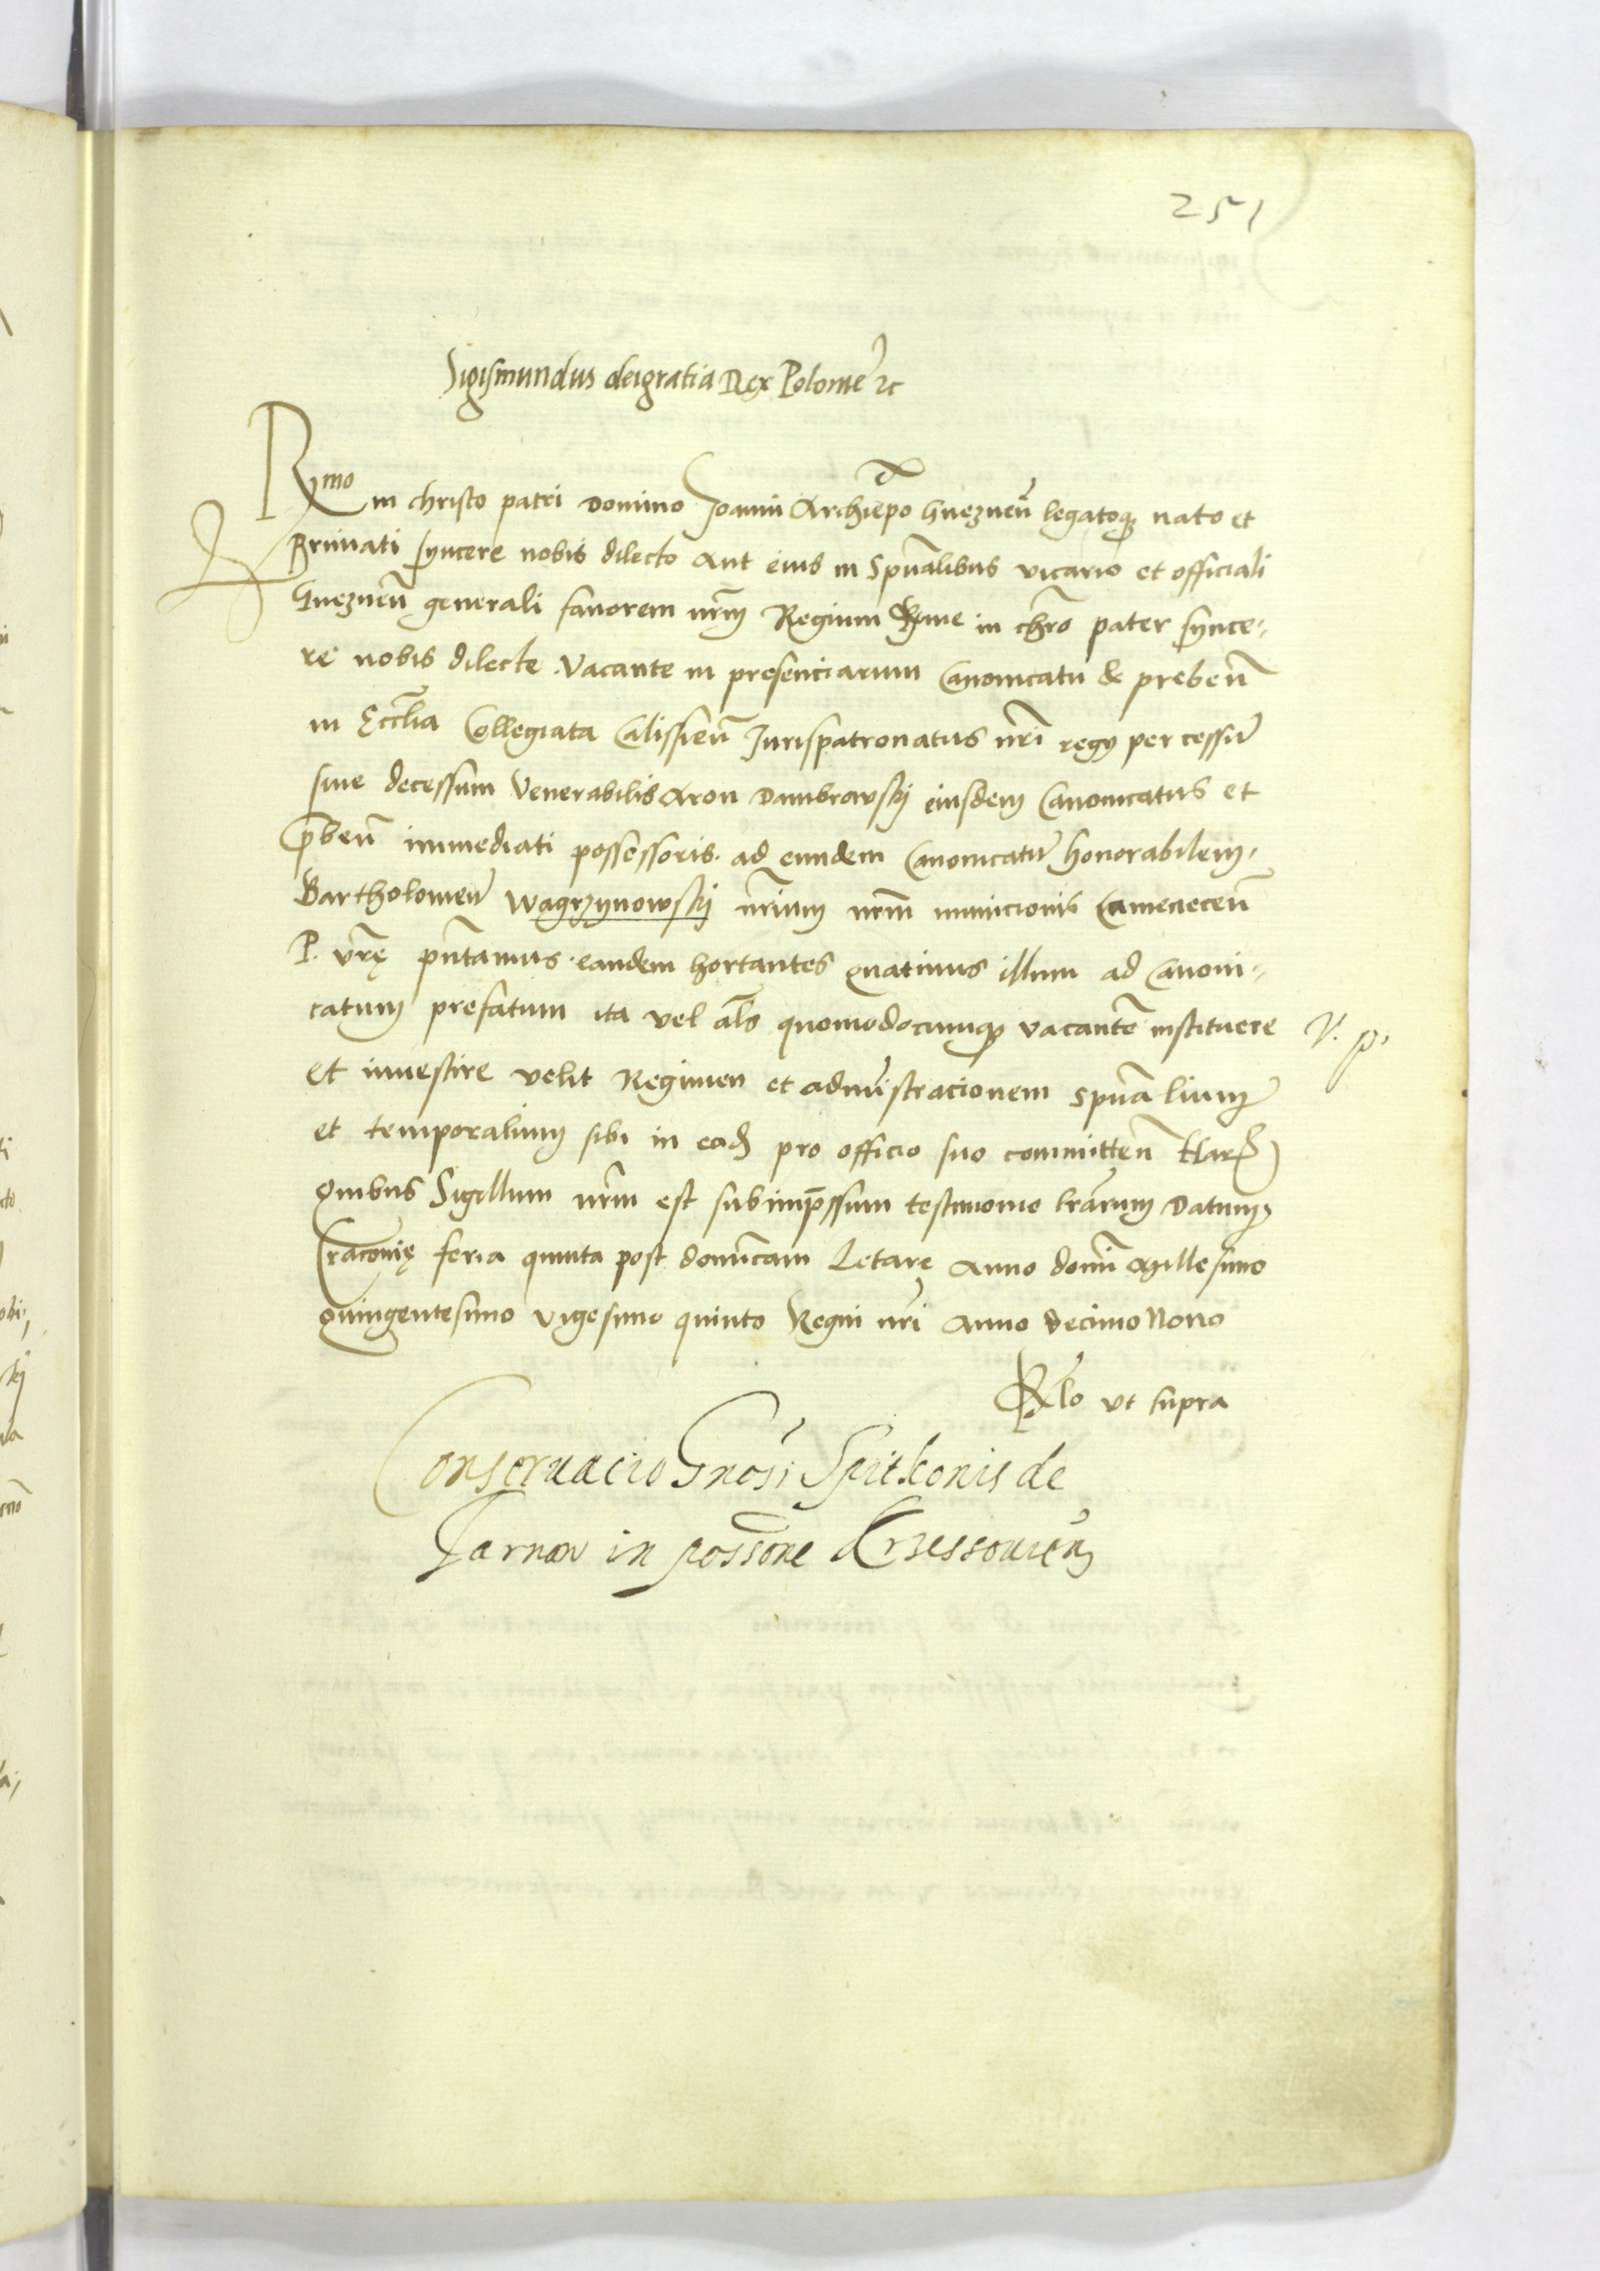 251
Sigismundus dei gratia Rex Polonie ꝛc
Rmo in christo patri Domino Joanni Archiepo Gneznen̄ legatoqꝫ nato et
Primati syncere nobis dilecto Aut eius in Spūalibus vicario et officiali
Gneznen̄ generali fauorem nrm̄ Regium in chro pater synce-
re nobis dilecte Vacante in presenciarum Canonicatu & preben̄
in Eccl̄ia Collegiata Calissien̄ Jurispatronatus nr̄i regy per cessū
siue decessum Venerabilis Aron Dambrowskj eiusdem Canonicatus et
p̄ben̄ immediati possessoris ad eundem Canonicatū honorabilem
Bartholomeū Wagrzynowskj nrm̄ municionis Camenecen̄
P. vrę pn̄tamus eandem hortantes quatinus illum ad Canoni-
catum prefatum ita vel als̄ quomodocumqꝫ vacantē instituere
V. p.
et inuestire velit Regimen et administracionem spūalium
et temporalium sibi in eadꝫ pro officio suo committen̄ Harꝫ
Quibus Sigillum nrm̄ est subimp̄ssum testimonio lrārum Datum
Cracouię feria quinta post dominicam Letare Anno domi Millesimo
Quingentesimo vigesimo quinto Regni nr̄i Anno decimo Nono
Rlō vt supra
Conseruacio Gnosi Spitkonis de
Tarnow in possone Krzessowien̄